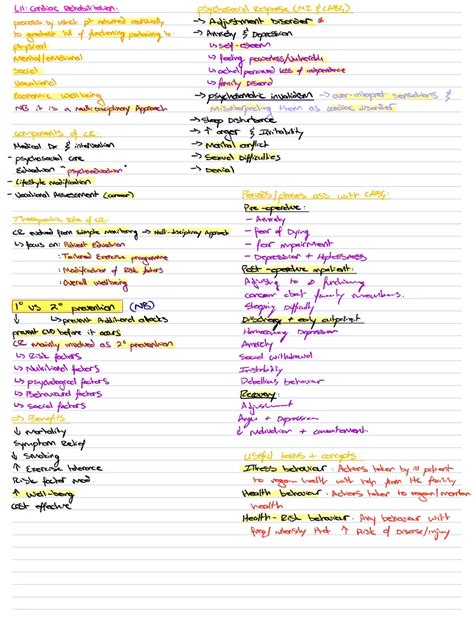 L11: Cardiac Rehabilitation:
process by which pt returned realistically
to greatest lvl of functioning pertaining to:
physical
Mental/emotional
Social
Vocational
Economic well being
NB it is a multi-disciplinary Approach
Components of CR:
Medical Dx & intervention
- psychosocial care
Education "psychoeducation"
- Lifestyle modification
- Vocational Assessment (career)
Therapeutic role of CR:
CR evolved from simple monitoring → Multi-disciplinary Approach
↳ focus on: Patient Education
: Tailored Exercise programme
: Modification of Risk factors
: Overall wellbeing
1° vs 2° prevention (NB)
↳ prevent Additional attacks
prevent CVD before it occurs
CR Mainly involved as 2° prevention
↳ Risk factors
↳ Nutritional factors
↳ psychological factors
↳ Behavioural factors
↳ social factors
⇒ Benefits
↓ Mortality
Symptom Relief
↓ Smoking
↑ Exercise tolerance
Risk factor mod.
↑ Well-being
cost effective
Psychosocial Response (MI & CABG)
→ Adjustment Disorder *
→ Anxiety & Depression
↳ self-esteem
↳ feeling powerless/vulnerable
↳ actual/perceived loss of independence
↳ family Discord
→ psychosomatic invalidism → over-interpret sensations &
misinterpreting them as cardiac disorder
→ Sleep Disturbance
→ ↑ anger & Irritability
→ Marital conflict
→ Sexual Difficulties
→ Denial
Periods/phases ass. with CABG:
Pre-operative:
- Anxiety
- fear of Dying
- fear impairment
- Depression & Helplessness
Post-operative inpatient:
Adjusting to functioning
concern about family members.
Sleeping Difficulty
Discharge + early outpatient
Homecoming Depression
Anxiety
Social withdrawal
Irritability
behaviour
Recovery:
Adjustment
Anger + Depression
↓ Motivation + commitment
Useful terms + concepts:
Illness behaviour: Actions taken by ill patient
to regain health with help from HC facility
Health behaviour: Actions taken to regain/maintain
health
Health-Risk behaviour: Any behaviour with
freq/intensity that ↑ Risk of Disease/injury